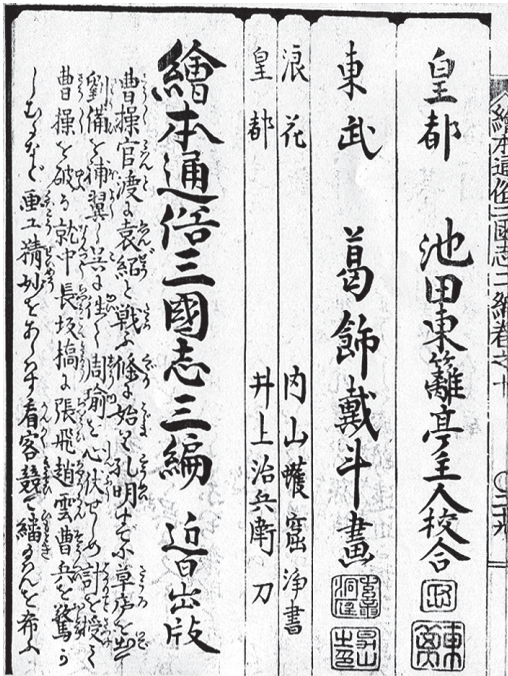 繪本通俗三國志二編卷之十
皇都 池田東籬亭主人校合
東武 葛飾戴斗畫
浪花 内山蠖窟浄書
皇都 井上治兵衞刀
繪本通俗三國志三編 近日出版
曹操官渡に袁紹と戰ふ條に始り孔明すでに草庐を出て
劉備を補翼し呉に往て周瑜を心伏せしめ計を授て
曹操を破る就中長坂橋に張飛趙雲曹兵を驚か
しむるなど画工精妙をあらはす看客競て繙かんを希ふ